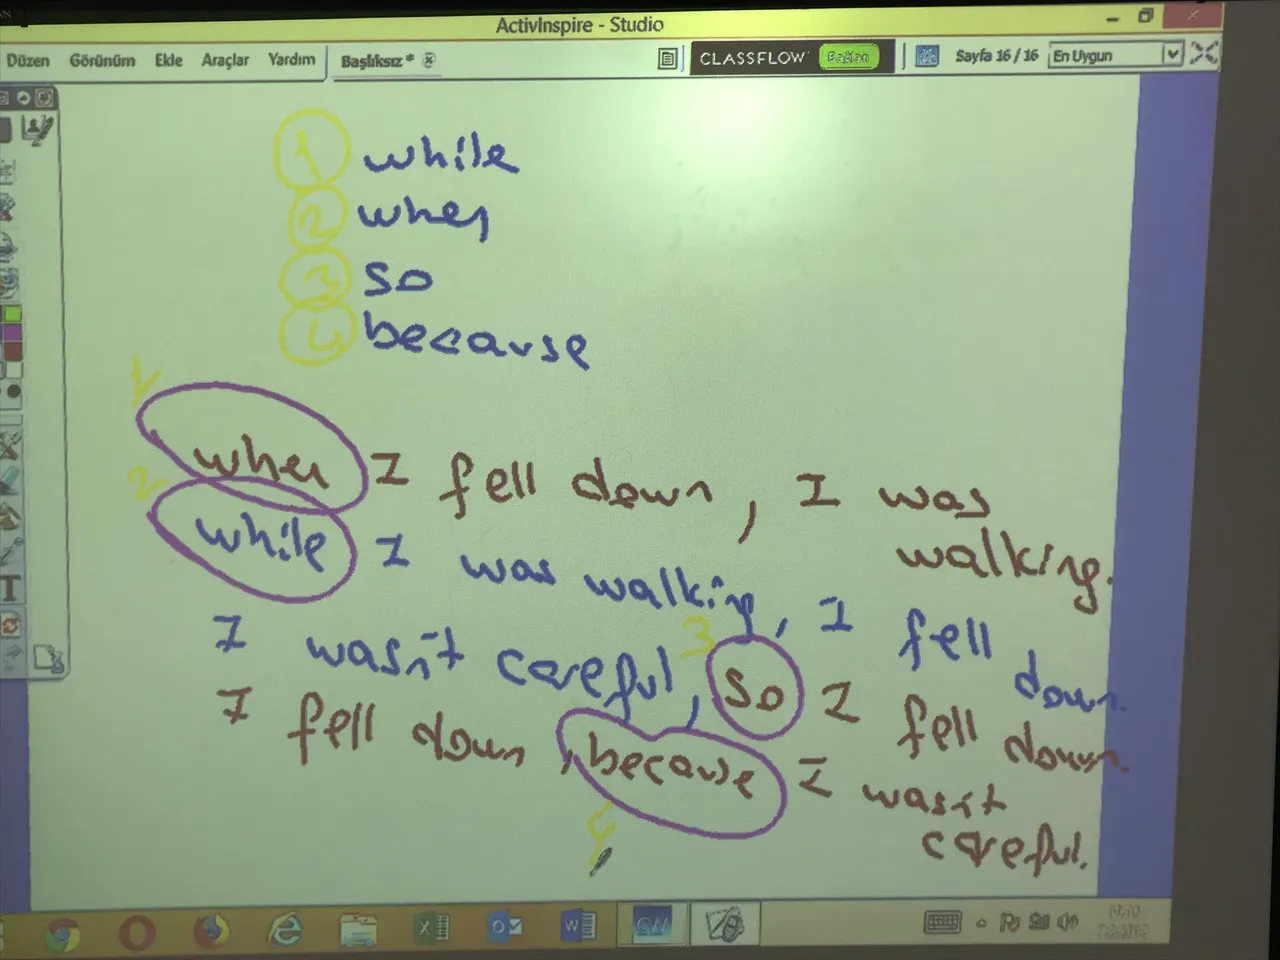 ActivInspire - Studio
Düzen Görünüm Ekle Araçlar Yardım Başlıksız* CLASSFLOW Bağlan Sayfa 16 / 16 En Uygun
1 while
2 when
3 so
4 because
1 when I fell down, I was
walking.
2 while I was walking, I fell
down.
I wasn't careful, 3 so I fell
down.
I fell down, because I wasn't
careful.
4
T
CW